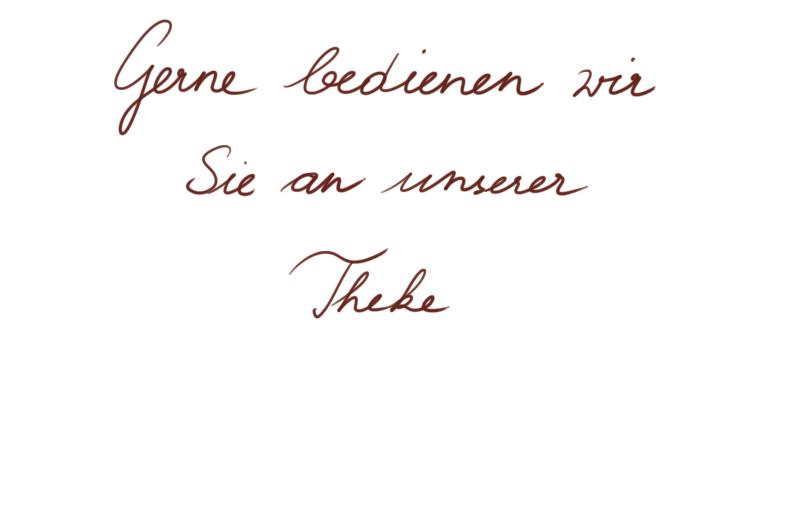 Gerne bedienen wir
Sie an unserer
Theke